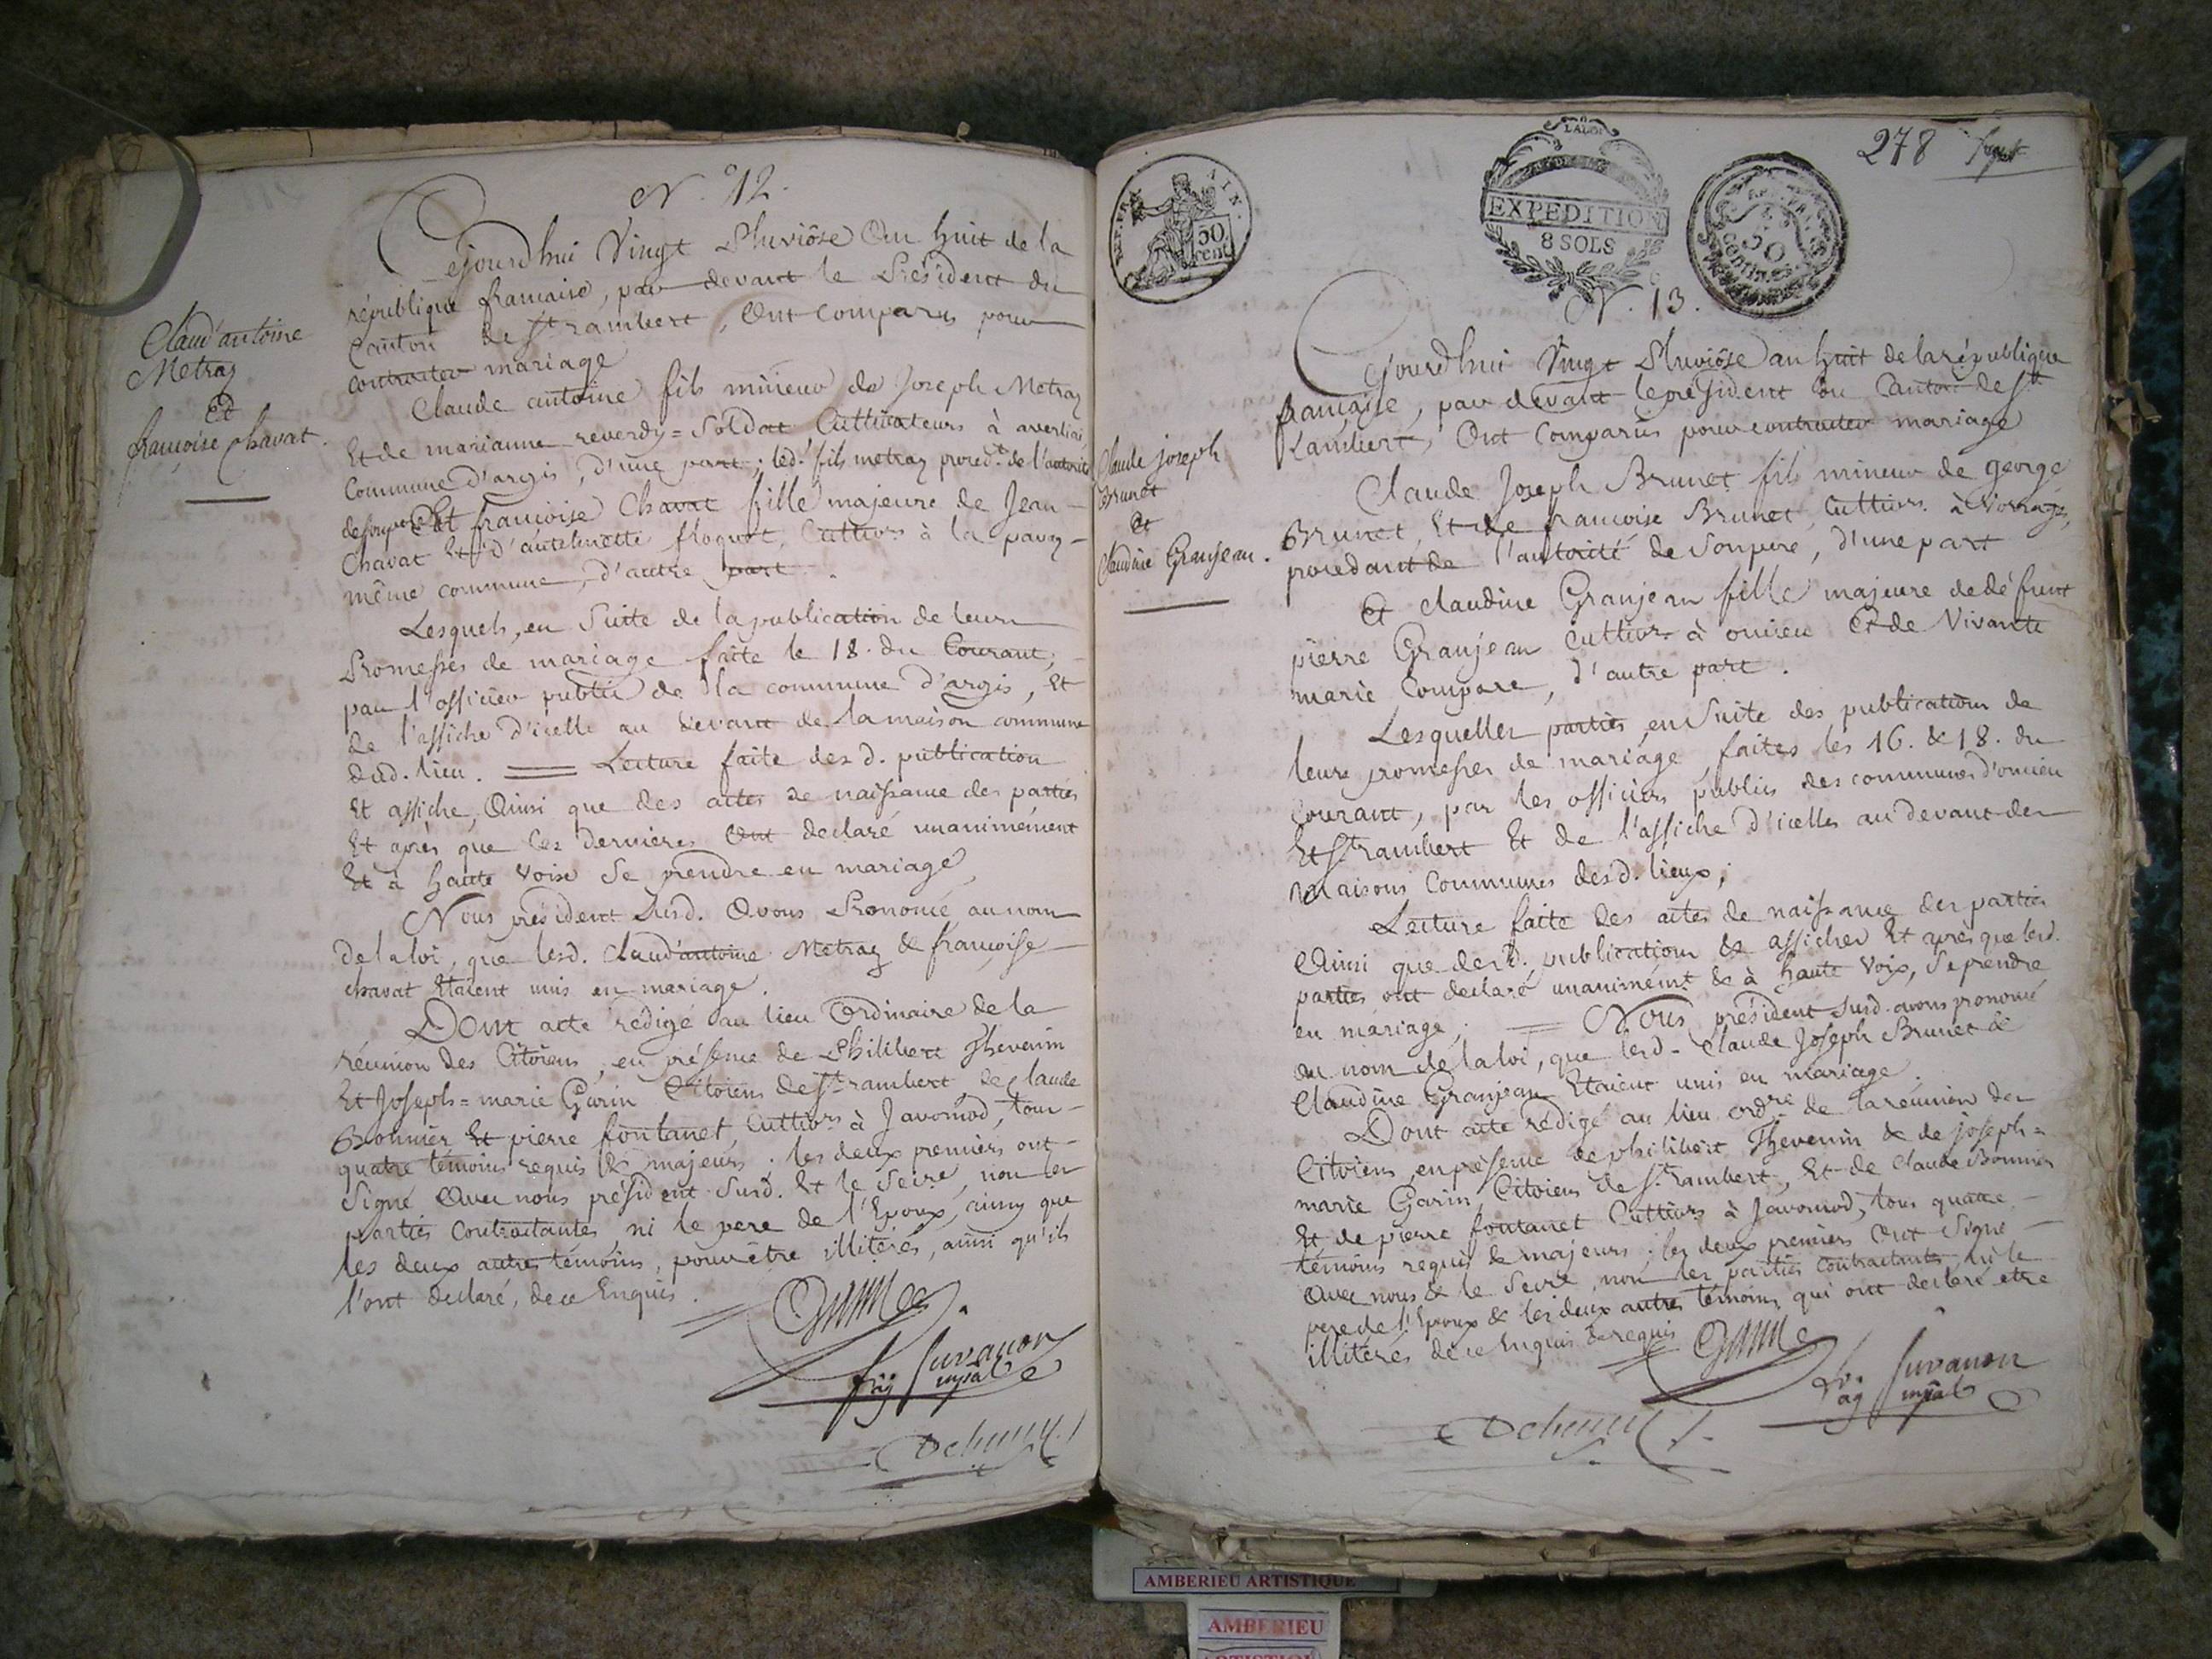 N.° 12.
Cejourdhui Vingt Pluviôse an huit de la
république francaise, par devant le Président du
Canton de St rambert, Ont comparus pour
contracter mariage
Claude antoine fils mineur de Joseph Metraz
Et de marianne reverdy = Soldat Cultivateurs à averliai
Commune d'argis, d'une part; led. fils metraz proced.t de l'autorité
de son pere Et françoise Chavat fille majeure de Jean
Chavat Et d'antelmette floquet, Cultivrs à la pavaz
même commune, d'autre part.
Lesquels, en Suite de la publication de leurs
Promesses de mariage faite le 18. du Courant,
par l'officier public de la commune d'argis, Et
de l'affiche d'icelle au devant de la maison commune
dud. lieu. = Lecture faite des d. publication
Et affiche, Ainsi que des actes de naissance des parties
Et après que les dernieres Ont declaré unanimément
Et à haute Voix Se prendre en mariage,
Nous président Susd. Avons Prononcé au nom
de la loi, que lesd. Claud'antoine Metraz & françoise
chavat Etaient unis en mariage.
Dont acte rédigé au lieu Ordinaire de la
réunion des Citoiens, en présence de Philibert Thevenin
Et Joseph = marie Garin Citoiens de St rambert de Claude
Bonnier Et pierre fontanet, Cultivrs à Javornod, tous
quatre témoins requis & majeurs. les deux premiers ont
Signé Avec nous président Susd. Et le Secre, non les
parties Contractantes, ni le pere de l'Epoux, ainsy que
les deux autres témoins, pour être illitérés, ainsi qu'ils
l'ont declaré, de ce Enquis.
Juvanon
Claud'antoine
Metraz
Et
françoise Chavat.
278
LA LOI
EXPEDITION
8 SOLS
50
cent
50
Centimes
N. 13.
Cejourdhui Vingt Pluviôse an huit de la république
française, par devant le président du Canton de St
Rambert, Ont Comparus pour contracter mariage
Claude Joseph Brunet fils mineur de george
Brunet, Et de françoise Brunet, Cultivrs à Vorrages,
procedant de l'autorité de Son pere, d'une part
Et Claudine Granjean fille majeure de défunt
pierre Granjean Cultivr à oncieu Et de Vivante
marie Compare, d'autre part.
Lesquelles parties, en Suite des publications de
leurs promesses de mariage, faites les 16. & 18. du
Courant, par les officiers publics des communes d'oncieu
Et St rambert Et de l'affiche d'icelles au devant des
maisons Communes desd. lieux;
Lecture faite des actes de naissance des parties
Ainsi que desd. publications & affiches Et après que lesd.
parties ont declaré unanimémt & à haute Voix, Se prendre
en mariage; = Nous président Susd. avons prononcé
au nom de la loi, que lesd. Claude Joseph Brunet &
Claudine Granjean Etaient unis en mariage.
Dont acte rédigé au lieu ordre de la réunion des
Citoiens, en présence de philibert Thevenin & de joseph =
marie Garin Citoiens de St Rambert, Et de Claude Bonnier
Et de pierre fontanet Cultivrs à Javornod, tous quatre
témoins requis & majeurs; les deux premiers Ont Signé
Avec nous & le Secre, non les parties contractantes, ni le
pere de l'Epoux & les deux autres témoins, qui ont declaré etre
illitérés de ce Enquis & requis
Juvanon
Claude joseph
Brunet
Et
Claudine Granjean.
AMBERIEU ARTISTIQUE
AMBERIEU
ARTISTIQUE